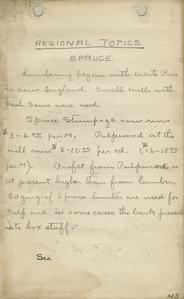 REGIONAL TOPICS
SPRUCE.
Lumbering began with White Pine
in New England. Small mills with
Sash Saws were used.
Spruce Stumpage now runs
$3-6.00 per M. Pulpwood at the
mill runs $8-10.00 per cd. ($16-18.00
per M). Profit from Pulpwood is
at present higher than from lumber.
Edgings of Spruce lumber are used for
Pulp and in some cases the bark pressed
into box stuff.
See